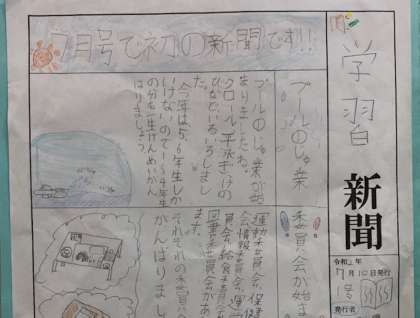 7月号で初の新聞です!!
学習
新聞
令和2年
7月10日発行
1号
発行者
プールのじゅ業
プールのじゅ業が始
まりましたね。
クロール、平泳ぎ、けの
びなどいろいろしまし
た。
今年は5、6年生しか
いけないので1~4年生
の分も一生けんめいがん
ばりましょう。
委員会が始ま
運動委員会、保健
会、情報委員会、運営
員会、給食委員
図書委員会があ
ます。
それぞれの委員
がんばりまし